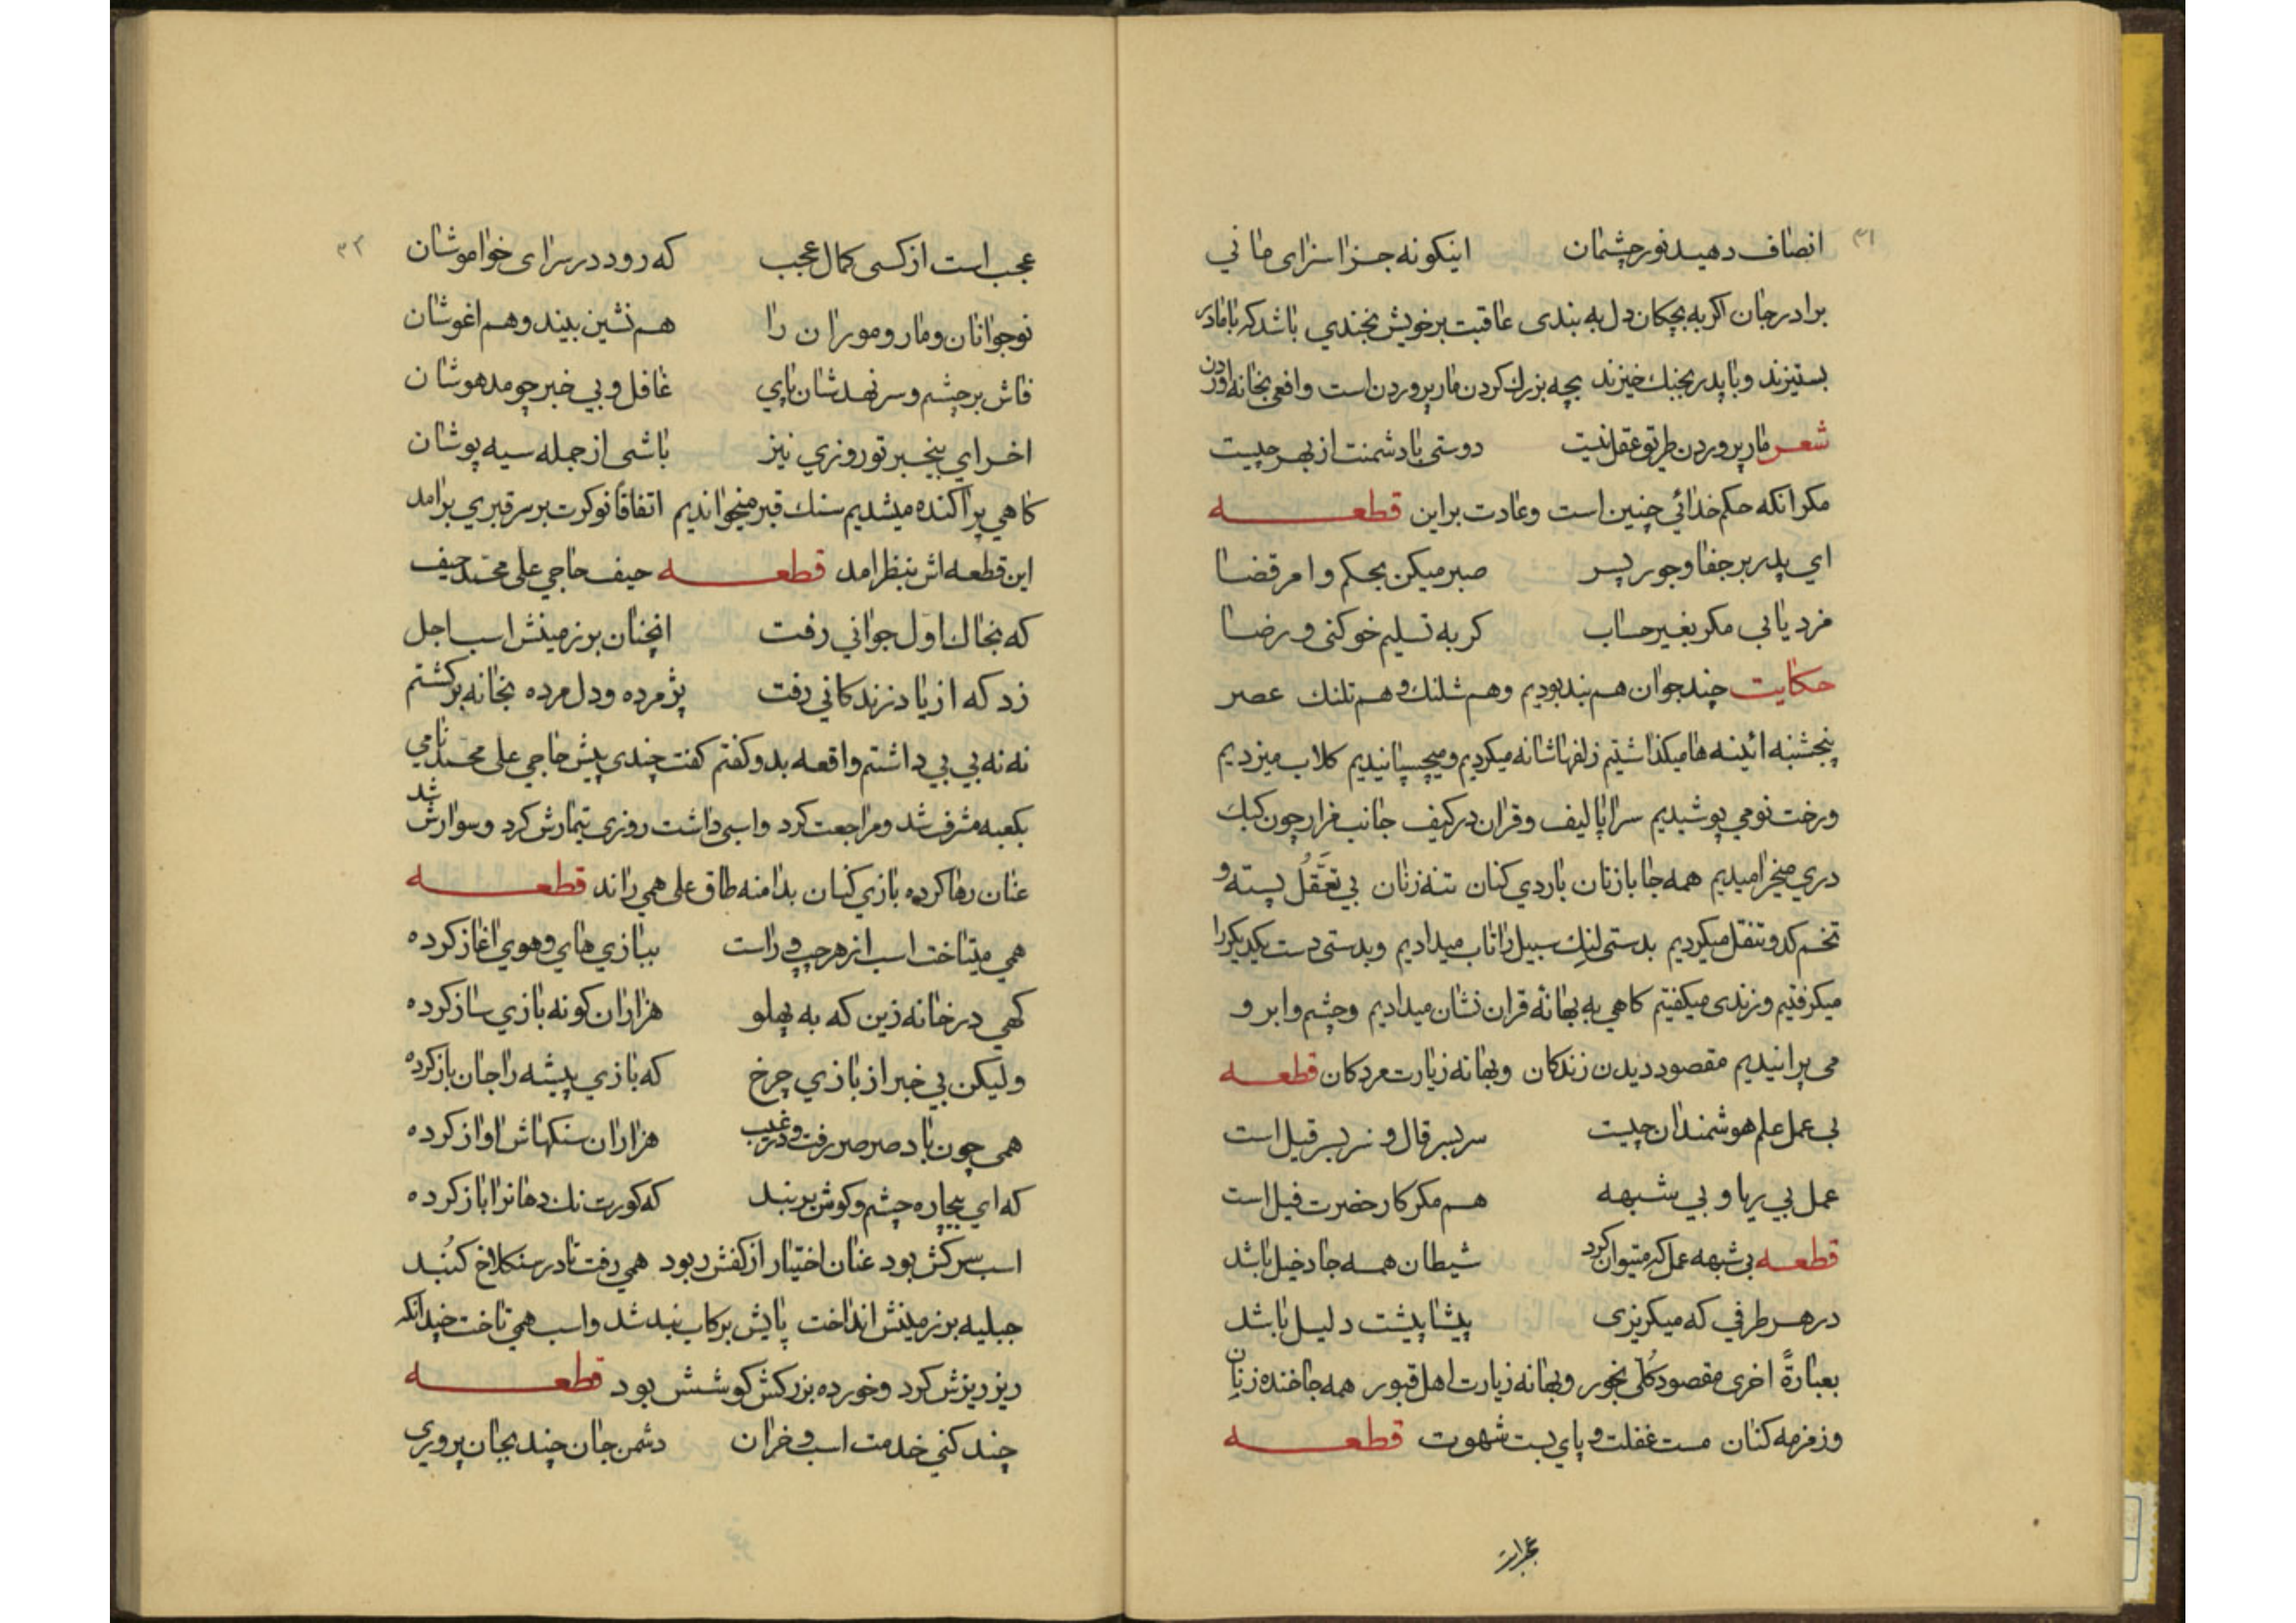 ۳۱
انصاف دهید نور چشمان اینکونه جزا سزای مانی
برادر جان اکر به بچکان دل به بندی عاقبت بر خویش بخندی باشد که بامادر
بستیزند و با پدر بجنك خیزند بچه بزرك کردن مار پروردن است وافعی بخانه اوردن
شعر مار پروردن طریق عقل نیست دوستی بادشمنت از بهر چیست
مکر انکه حکم خدائي چنین است وعادت براین قطعه
اي پدر بر جفا وجور پسر صبر میکن بحکم وامر قضا
مزد یابي مکر بغیر حساب کر به تسلیم خو کنی ورضا
حکایت چند جوان هم بند بودیم وهم شلنك وهم تلنك عصر
پنجشنبه ائینه ها میکذاشتیم زلفها شانه میکردیم ومیچسپانیدیم کلاب میزدیم
ورخت نو می پوشیدیم سراپا لیف وقران در کیف جانب مزار چون کبك
دري میخرامیدیم همه جا بازنان باردي کنان تنه زنان بي تعقل پسته و
تخم کدو تنقل میکردیم بدستی لنك سبیل را تاب میدادیم وبدستی دست یکدیکر را
میکرفتیم ورندی میکفتیم کاهي به بهانهٔ قران نشان میدادیم وچشم وابرو
می پرانیدیم مقصود دیدن زندکان وبهانه زیارت مردکان قطعه
بي عمل علم هوشمندان چیست سربسر قال ونر بسر قیل است
عمل بي ریا وبي شبهه هم مکر کار حضرت فیل است
قطعه بی شبهه عمل که میتوان کرد شیطان همه جا دخیل باشد
در هر طرفي که میکریزی پیشاپیشت دلیل باشد
بعبارةً اخری مقصود کلی نجور وبهانه زیارت اهل قبور همه جا خنده زنان
وزمزمه کنان مست غفلت و پاي بست شهوت قطعه
۳۲
عجب است از کسی کمال عجب که رود در سرای خواموشان
نوجوانان ومار وموران را هم نشین بیند وهم اغوشان
فاش بر چشم وسر نهدشان پاي غافل وبي خبر چو مدهوشان
اخر اي بیخبر تو روزي نیز باشی از جمله سیه پوشان
کاهي پراکنده میشدیم سنك قبر میخواندیم اتفاقاً نوکرت بر سر قبري برامد
این قطعه اش بنظر امد قطعه حیف حاجي علی محمد حیف
که بخاك اول جواني رفت انچنان بر زمینش اسب اجل
زد که از یاد زندکاني رفت پژمرده ودل مرده بخانه برکشتم
نه نه بي بي داشتم واقعه بدو کفتم کفت چندی پیش حاجي علی محمد نامي
بکعبه مشرف شد ومراجعت کرد واسبی داشت روزي تیمارش کرد وسوارش شد
عنان رها کرده بازي کنان بدامنه طاق علی همی راند قطعه
همي میتاخت اسب از هر چپ و راست ببازي هاي وهوي اغاز کرده
کهي در خانه زین که به پهلو هزاران کونه بازي ساز کرده
ولیکن بي خبر از بازي چرخ که بازي پیشه را جان باز کرده
همی چون باد صرصر رفت و در عقب هزاران سنکهاش اواز کرده
که اي بیچاره چشم وکوش بر بند که کورت نك دهانرا باز کرده
اسب سرکش بود عنان اختیار از کفش ربود همي رفت تا در سنکلاخ کنبد
جبلیه بر زمینش انداخت پایش برکاب بند شد واسب همي تاخت چندانکه
ریز ریزش کرد وخورده بزرکش کوشش بود قطعه
چند کني خدمت اسب و خران دشمن جان چند بجان پروري